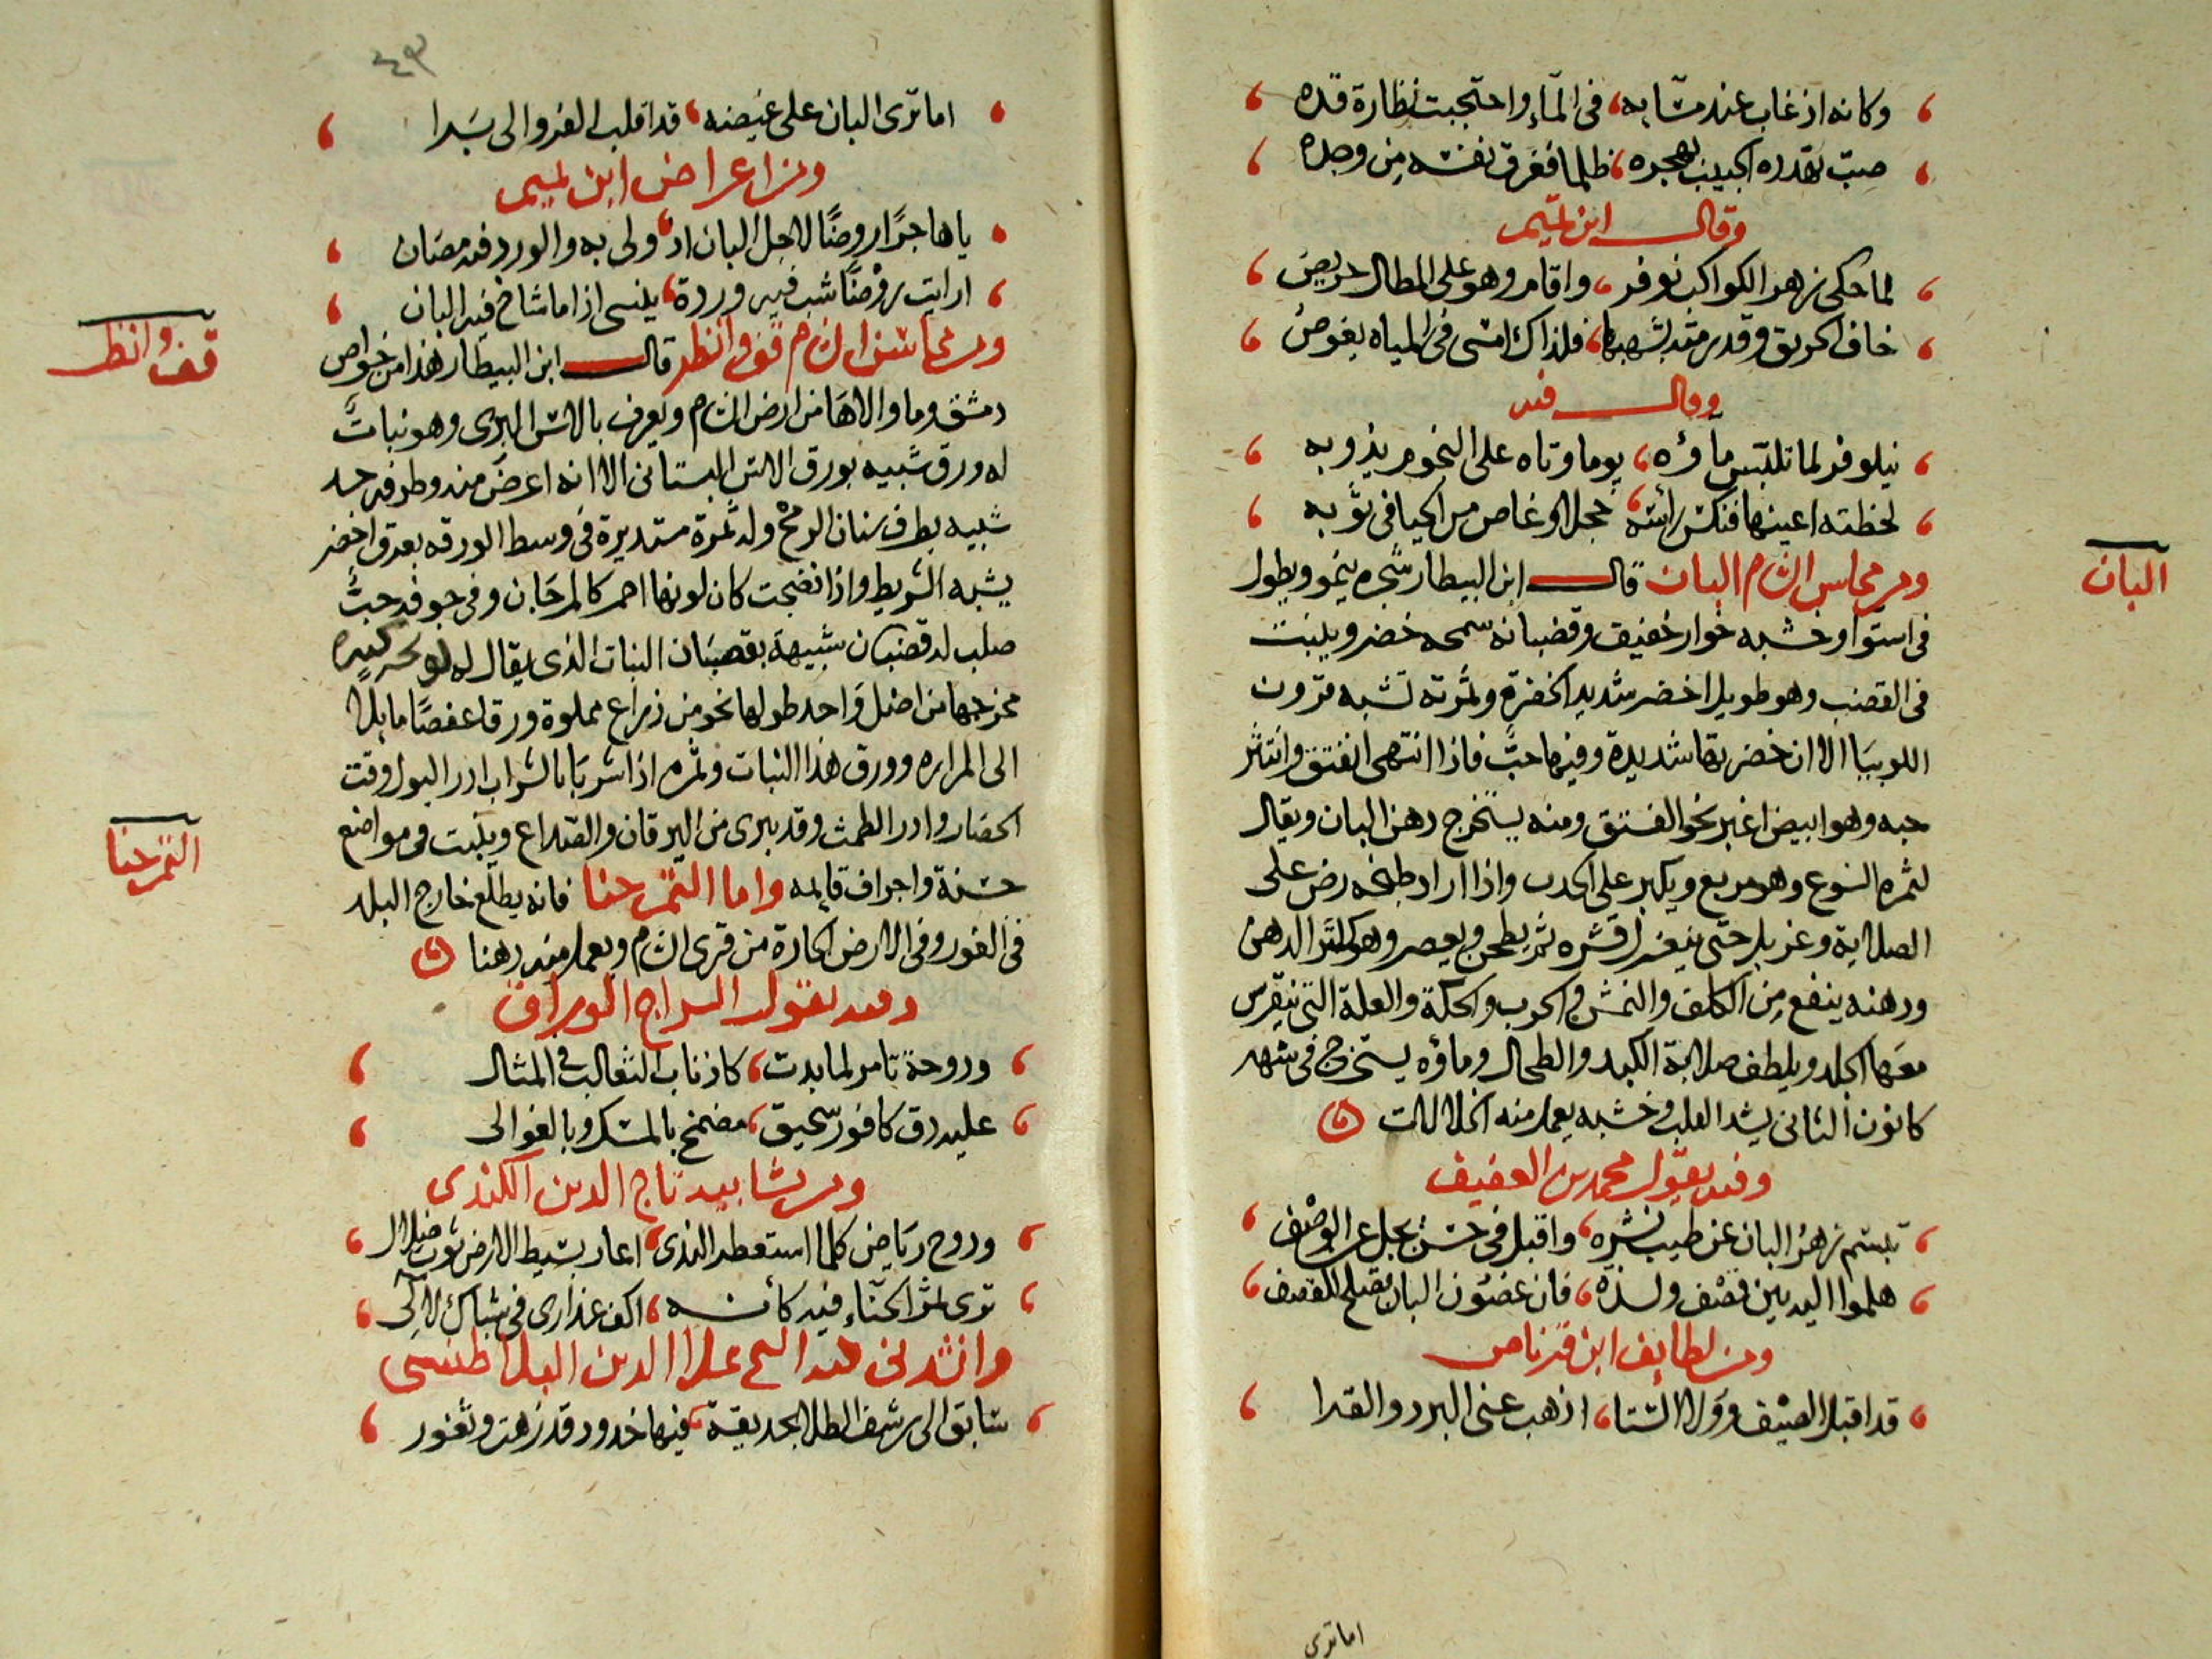 وكانه اذ غاب عند مسابه، في الماء واحتجبت نظارة قده
صب تهدده الحبيب بهجره، ظلما فغرق نفسه من وجده
وقال ابن تميم
لما حكى زهر الكواكب نوفر، واقام وهو على المطال حريص
خاف الحريق وقد رمته بشهبها، فلذاك امسى في المياه يغوص
وقال فيه
نيلوفر لما تلبس ماؤه، يوما وتاه على النجوم بذوبه
لحظته اعينها فنكس راسه، خجلا وغاص من الحيا في ثوبه
ومن محاسن الشام البان قال ابن البيطار شجره ينمو ويطول
في استوا وخشبه خوار خفيف وقضبانه سمحه خضر وينبت
في القضب وهو طويل اخضر شديد الخضرة وثمرته تشبه قرون
اللوبيا الا ان خضرتها شديدة وفيها حب فاذا انتهى انفتق وانتثر
حبه وهو ابيض اغبر نحو الفستق ومنه يستخرج دهن البان ويقال
لثمره الشوع وهو مربع ويكبر على الجدب واذا اراد طبخه رض على
الصلاية وغربل حتى ينعزل قشره ثم يطحن ويعصر وهو كثير الدهن
ودهنه ينفع من الكلف والنمش والجرب والحكة والعلة التي يتقرس
معها الجلد ويلطف صلابة الكبد والطحال وماؤه يستخرج في شهر
كانون الثاني يشد القلب وخشبه يعمل منه الخلالات
وفيه يقول محمد بن العفيف
تبسم زهر البان عن طيب نشره، واقبل في حسن يجل عن الوصف
هلموا اليه بين قصف ولذه، فان غصون البان تصلح للقصف
ومن لطايف ابن قرناص
قد اقبل الصيف وولا الشتا، اذهب عني البرد والقرا
اما ترى
البان
٤٩
اما ترى البان على غيضنه، قد اقلب الفرو الى برا
ومن اعراض ابن تميم
يا هاجرا روضا لاجل البان اذ، ولى به والورد فيه مضان
ارايت روضا شب فيه وردة، ينسى اذا ما شاخ فيه البان
ومن محاسن الشام قف وانظر قال ابن البيطار هذا من خواص
دمشق وما والاها من ارض الشام ويعرف بالاس البري وهو نبات
له ورق شبيه بورق الاس البستاني الا انه اعرض منه وطرفه حد
شبيه بطرف سنان الرمح وله ثمرة مستديرة في وسط الورقه بعرق اخضر
يشبه الشريط واذا نضجت كان لونها احمر كالمرجان وفي جوفه حب
صلب له قضبان شبيهة بقضبان النبات الذي يقال له لو كثيره
مخرجها من اصل واحد طولها نحو من ذراع مملوة ورقا عفصا مايلا
الى المراره وورق هذا النبات وثمره اذا شربا بالشراب ادر البول وفتت
الحصا وادر الطمث وقد يبرى من اليرقان والصداع وينبت في مواضع
خشنة واجراف قايمه واما التمر حنا فانه يطلع خارج البلد
في الغور وفي الارض الحارة من قرى الشام ويعمل منه دهنا
وفيه يقول السراج الوراق
ودوحة تامر لما بدت، كاذناب الثعالب في المثال
عليه دق كافور سحيق، مضمخ بالمسك وبالغوالي
ومن تشابيه تاج الدين الكندي
ودوح رياض كلما استعطر الندى، اعار بسيط الارض ثوب ضلال
ترى ثمر الحناء فيه كأنه، اكف عذارى في شباك لالي
وانشدني فيه الشيخ علا الدين البلاطنسي
سابق الى رشف الطلا بحديقة، فيها خدود قد زهت وثغور
قف وانظر
التمر حنا